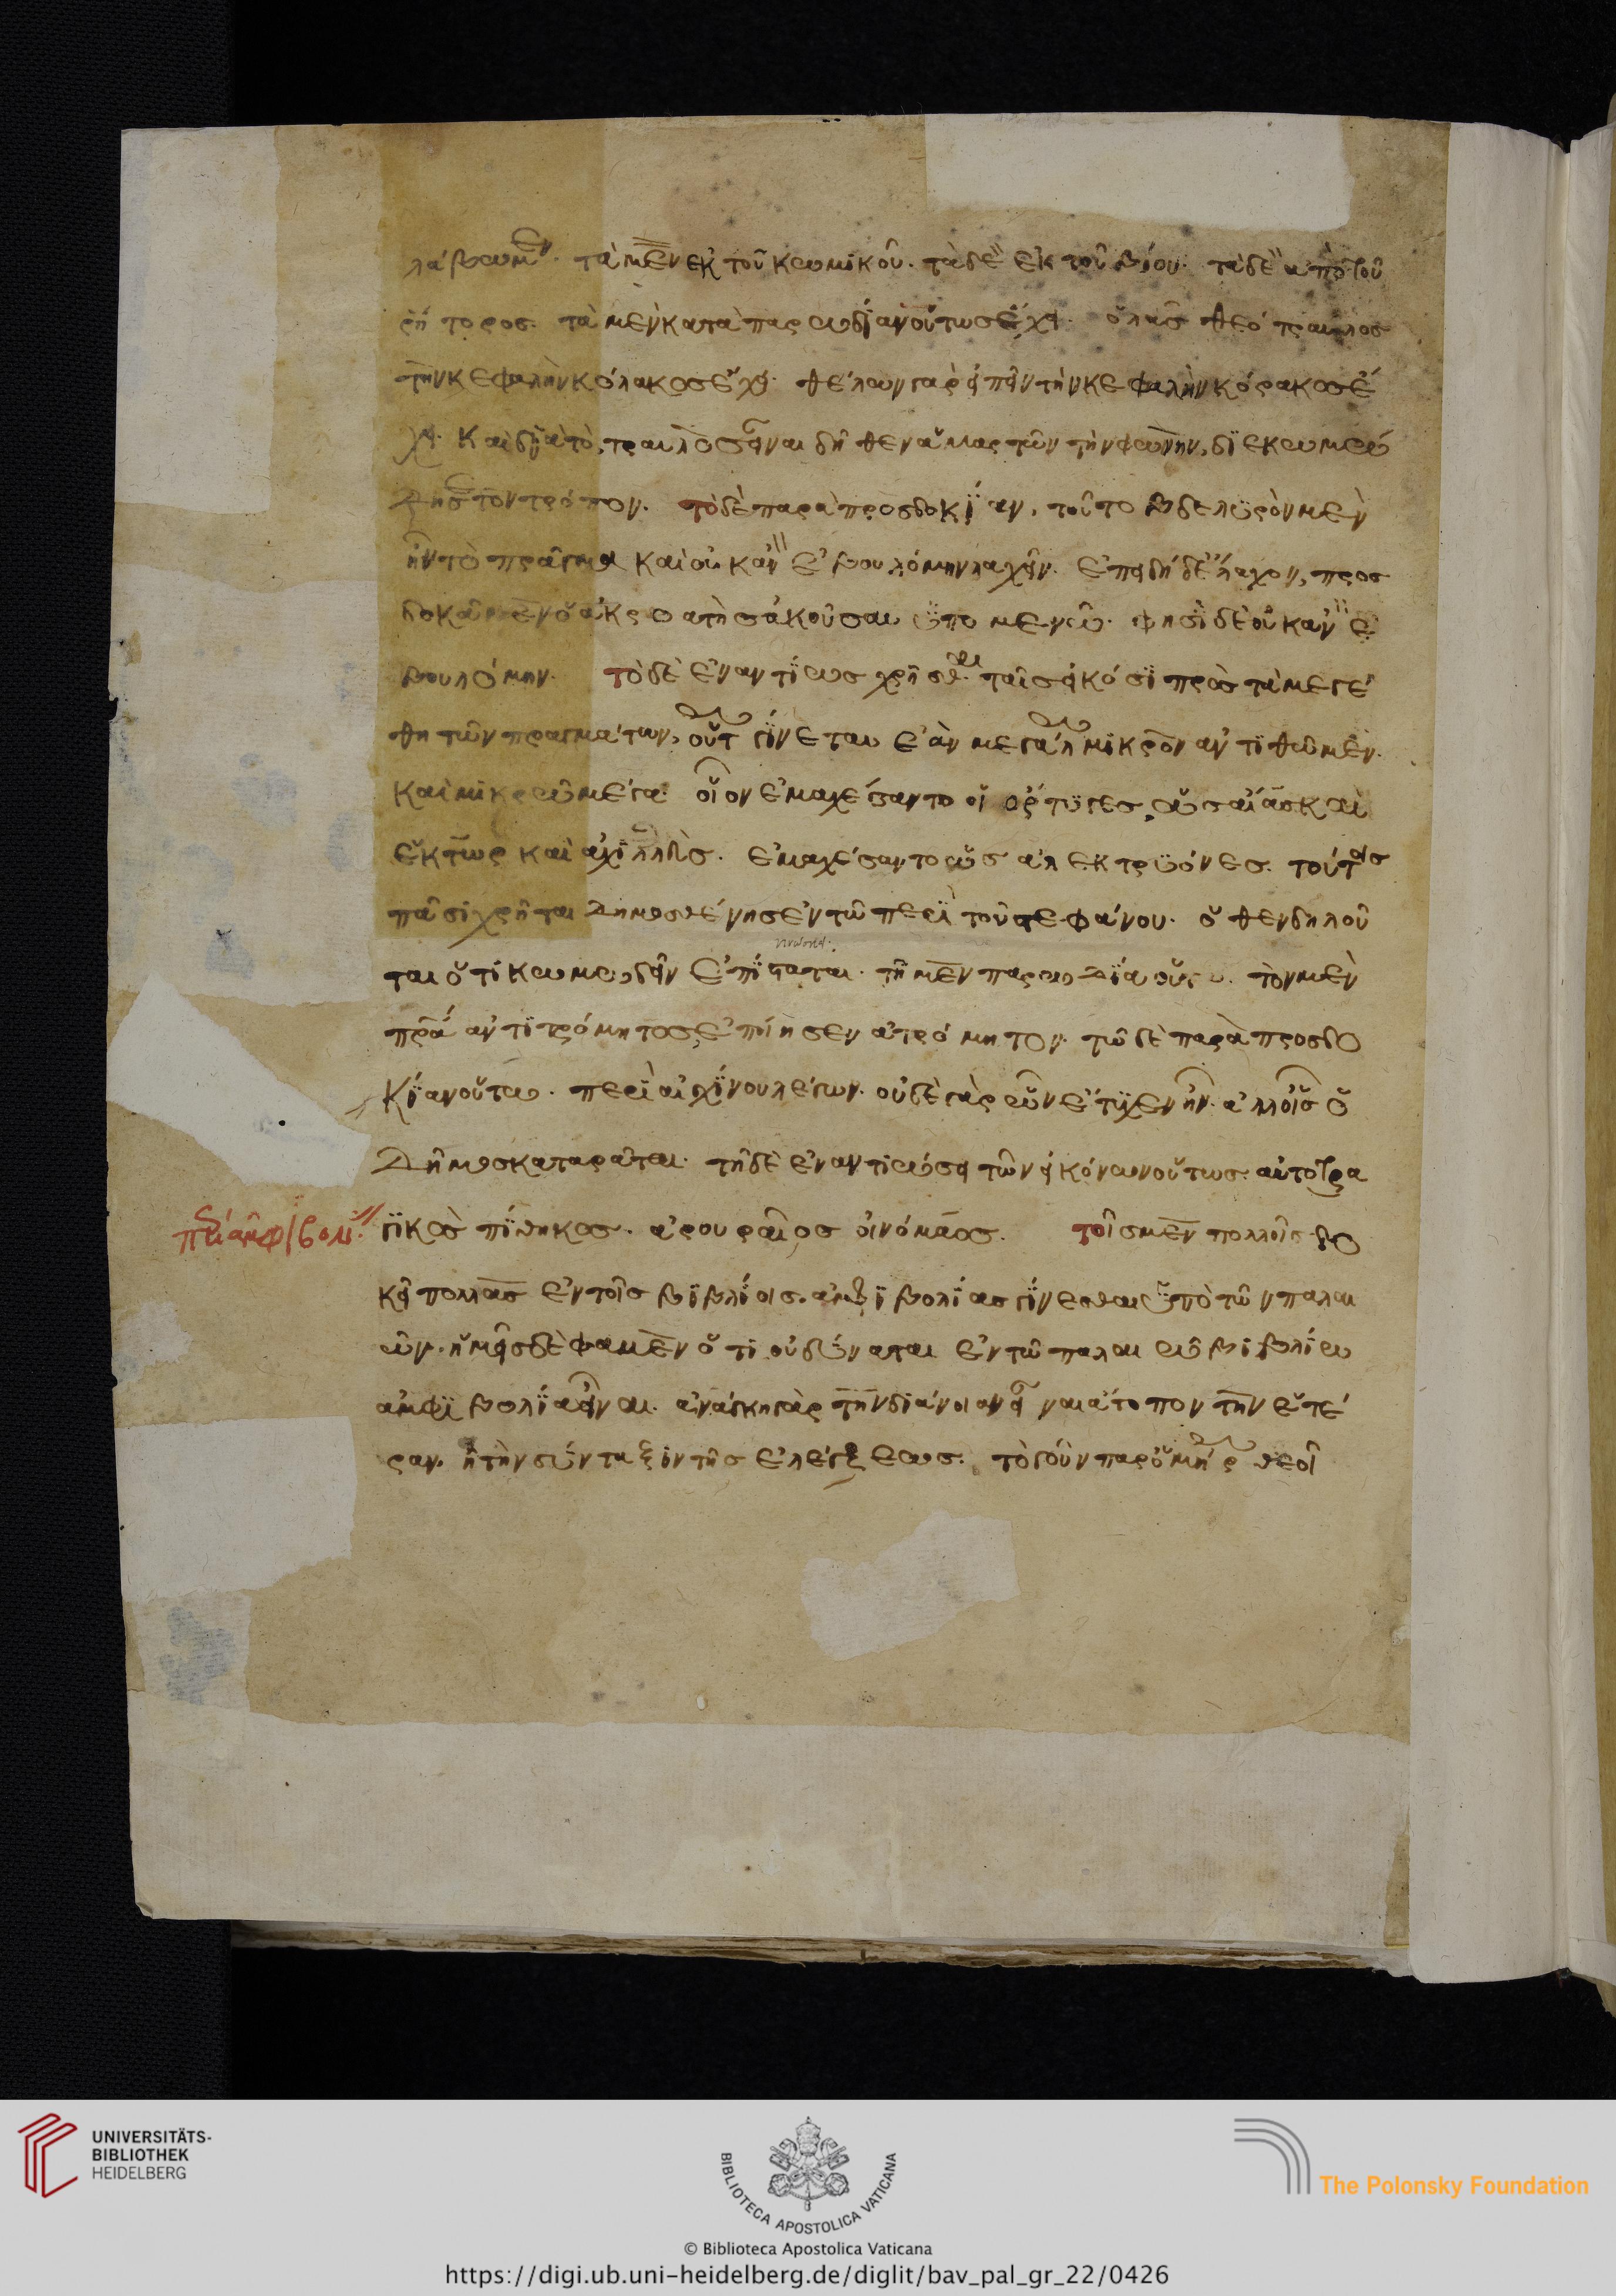 λάβωμεν. τὰ μὲν ἐκ τοῦ κωμικοῦ. τὰ δὲ ἐκ τοῦ βίου. τὰ δὲ ἀπὸ τοῦ
ῥήτορος. τὰ μὲν κατὰ παρωδίαν οὕτως ἔχει. ὁλᾶς θεό τραυλος
τὴν κεφαλὴν κόλακος ἔχει. θέλων γὰρ εἰπεῖν τὴν κεφαλὴν κόρακος ἔ
χει. καὶ διὰ τὸ τραυλὸς εἶναι δῆθεν ἁμαρτῶν τὴν φωνὴν, διεκωμώ
δησε τὸν τρόπον. τὸ δὲ παρὰ προσδοκίαν, τοῦτο βδελυρὸν μὲν
ἦν τὸ πρᾶγμα καὶ οὐκ ἂν ἐβουλόμην λαχεῖν. ἐπειδὴ δὲ ἔλαχον, προσ
δοκᾶ μὲν ὁ ἀκροατὴς ἀκοῦσαι ὑπομενῶ. φησὶ δὲ οὐκ ἂν ἐ
βουλόμην. τὸ δὲ ἐναντίως χρῆσθαι ταῖς εἰκόσι πρὸς τὰ μεγέ
θη τῶν πραγμάτων, οὕτω γίνεται ἐὰν μεγάλω μικρὸν ἀντιθῶμεν.
καὶ μικρῶ μέγα. οἷον ἐμαχέσαντο οἱ ὄρτυγες, ὡς αἴας καὶ
ἕκτωρ καὶ ἀχιλλεὺς. ἐμαχέσαντο ὡς ἀλεκτρυόνες. τούτοις
πᾶσι χρῆται δημοσθένης ἐν τῶ περὶ τοῦ στεφάνου. ὅθεν δηλοῦ
ται ὅτι κωμωδεῖν ἐπίσταται. τῆ μὲν παρωδία οὕτω. τὸν μὲν
πρα ἀντὶ τρόμητος ἐποίησεν ἀτρόμητον. τῶ δὲ παρὰ προσδο
κίαν οὕτω. περὶ αἰσχίνου λέγων. οὐδὲ γὰρ ὧν ἔτυχεν ἦν. ἀλλ' οἷς ὁ
δῆμος καταρᾶται. τῆ δὲ ἐναντιώσει τῶν εἰκόνων οὕτως. αὐτοτρα
γικὸς πίθηκος. ἀρουραῖος οἰνόμαος. τοῖς μὲν πολλοῖς δο
κεῖ πολλὰς ἐν τοῖς βιβλίοις ἀμφιβολίας γίνεσθαι ὑπὸ τῶν παλαι
ῶν. ἡμεῖς δὲ φαμὲν ὅτι οὐ δύναται ἐν τῶ παλαιῶ βιβλίω
ἀμφιβολία εἶναι. ἀνάγκη γὰρ τὴν διάνοιαν εἶναι ἄτοπον τὴν ἑτέ
ραν. ἢ τὴν σύνταξιν τῆς ἐλέγξεως. τὸ γοῦν παρ' ὁμήρω θεοῖ
περὶ ἀμφιβολι
UNIVERSITÄTS-
BIBLIOTHEK
HEIDELBERG
BIBLIOTECA APOSTOLICA VATICANA
The Polonsky Foundation
© Biblioteca Apostolica Vaticana
https://digi.ub.uni-heidelberg.de/diglit/bav_pal_gr_22/0426